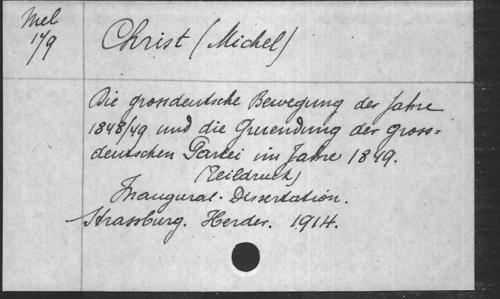 Mel
1/9
Christ (Michel)
Die grossdeutsche Bewegung der Jahre
1848/49 und die Gruendung der gross=
deutschen Partei im Jahre 1849.
(Teildruck)
Inaugural-Dissertation.
Strassburg. Herder. 1914.